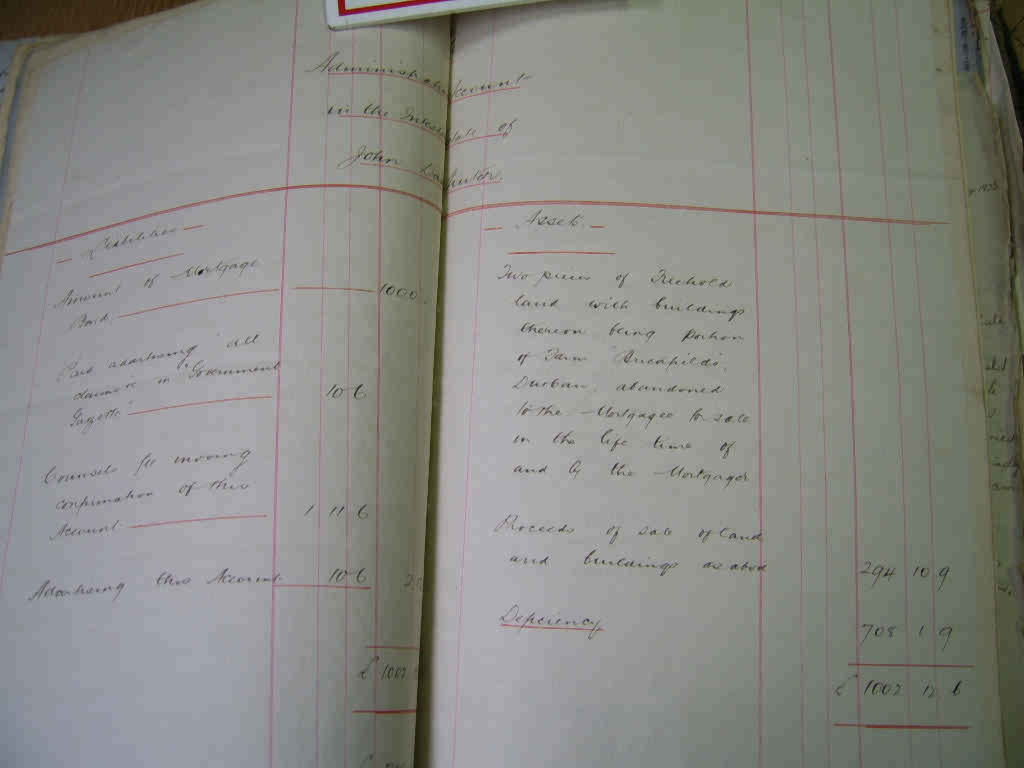 Administration Account
in the Intestate of
John
Liabilities
Amount of Mortgage
Bond 1000
Paid advertising all
claims in "Government
Gazette" 10 6
Counsels fee moving
confirmation of this
Account 1 11 6
Advertising this Account 10 6 2
£ 1002
Assets.
Two pieces of Freehold
land with buildings
thereon being portion
of Farm
Durban, abandoned
to the Mortgagee for sale
in the life time of
and by the Mortgagor
Proceeds of sale of land
and buildings as above 294 10 9
Deficiency 708 1 9
£ 1002 12 6